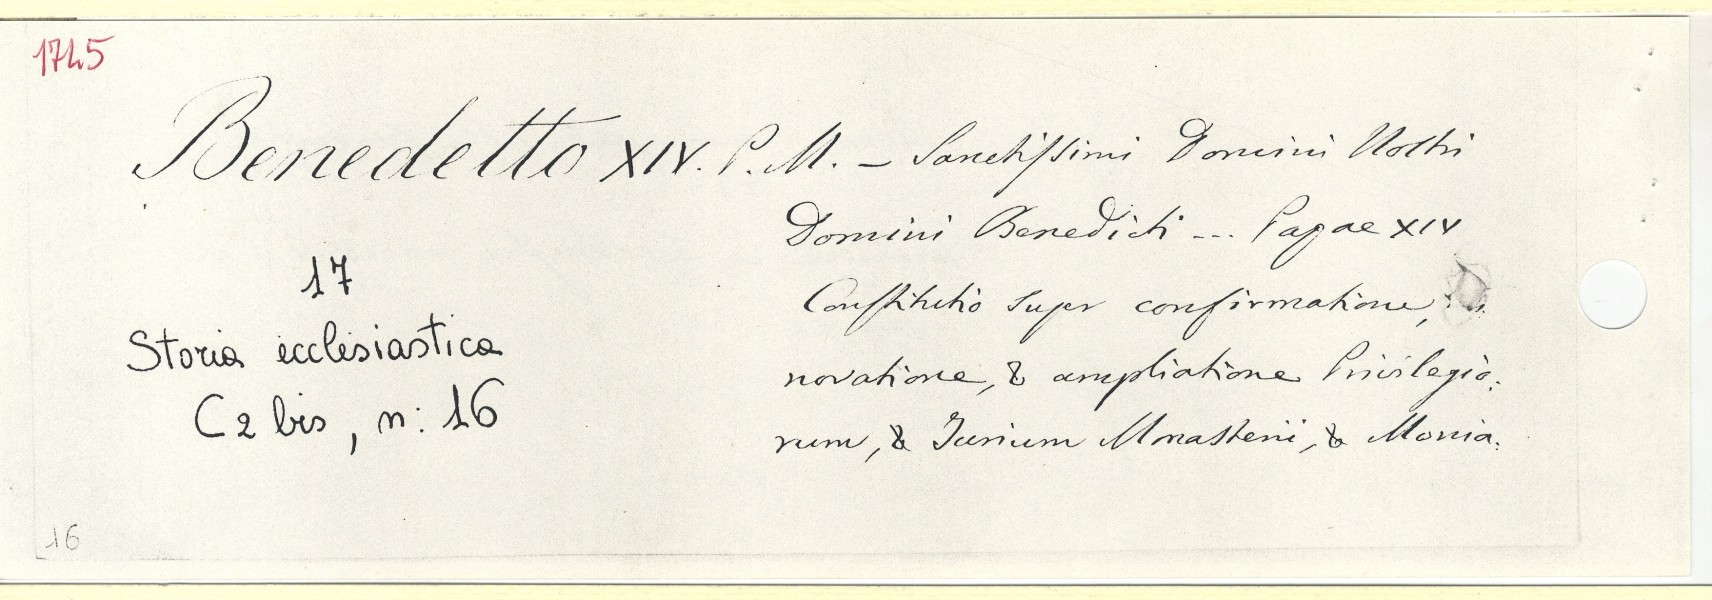 1745
Benedetto XIV. P. M. – Sanctissimi Domini Nostri
Domini Benedicti --- Papae XIV
Constitutio super confirmatione,
novatione, & ampliatione Privilegio:
rum, & Jurium Monasterii, & Monia:
17
Storia ecclesiastica
C2 bis, n: 16
16